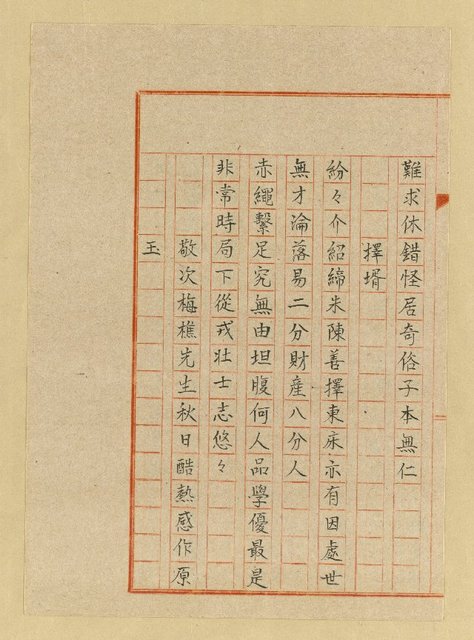 難求休錯怪居奇俗子本無仁
擇壻
紛々介紹締朱陳善擇東床亦有因處世
無才淪落易二分財產八分人
赤繩繫足究無由坦腹何人品學優最是
非常時局下從戎壯士志悠々
敬次梅樵先生秋日酷熱感作原
玉